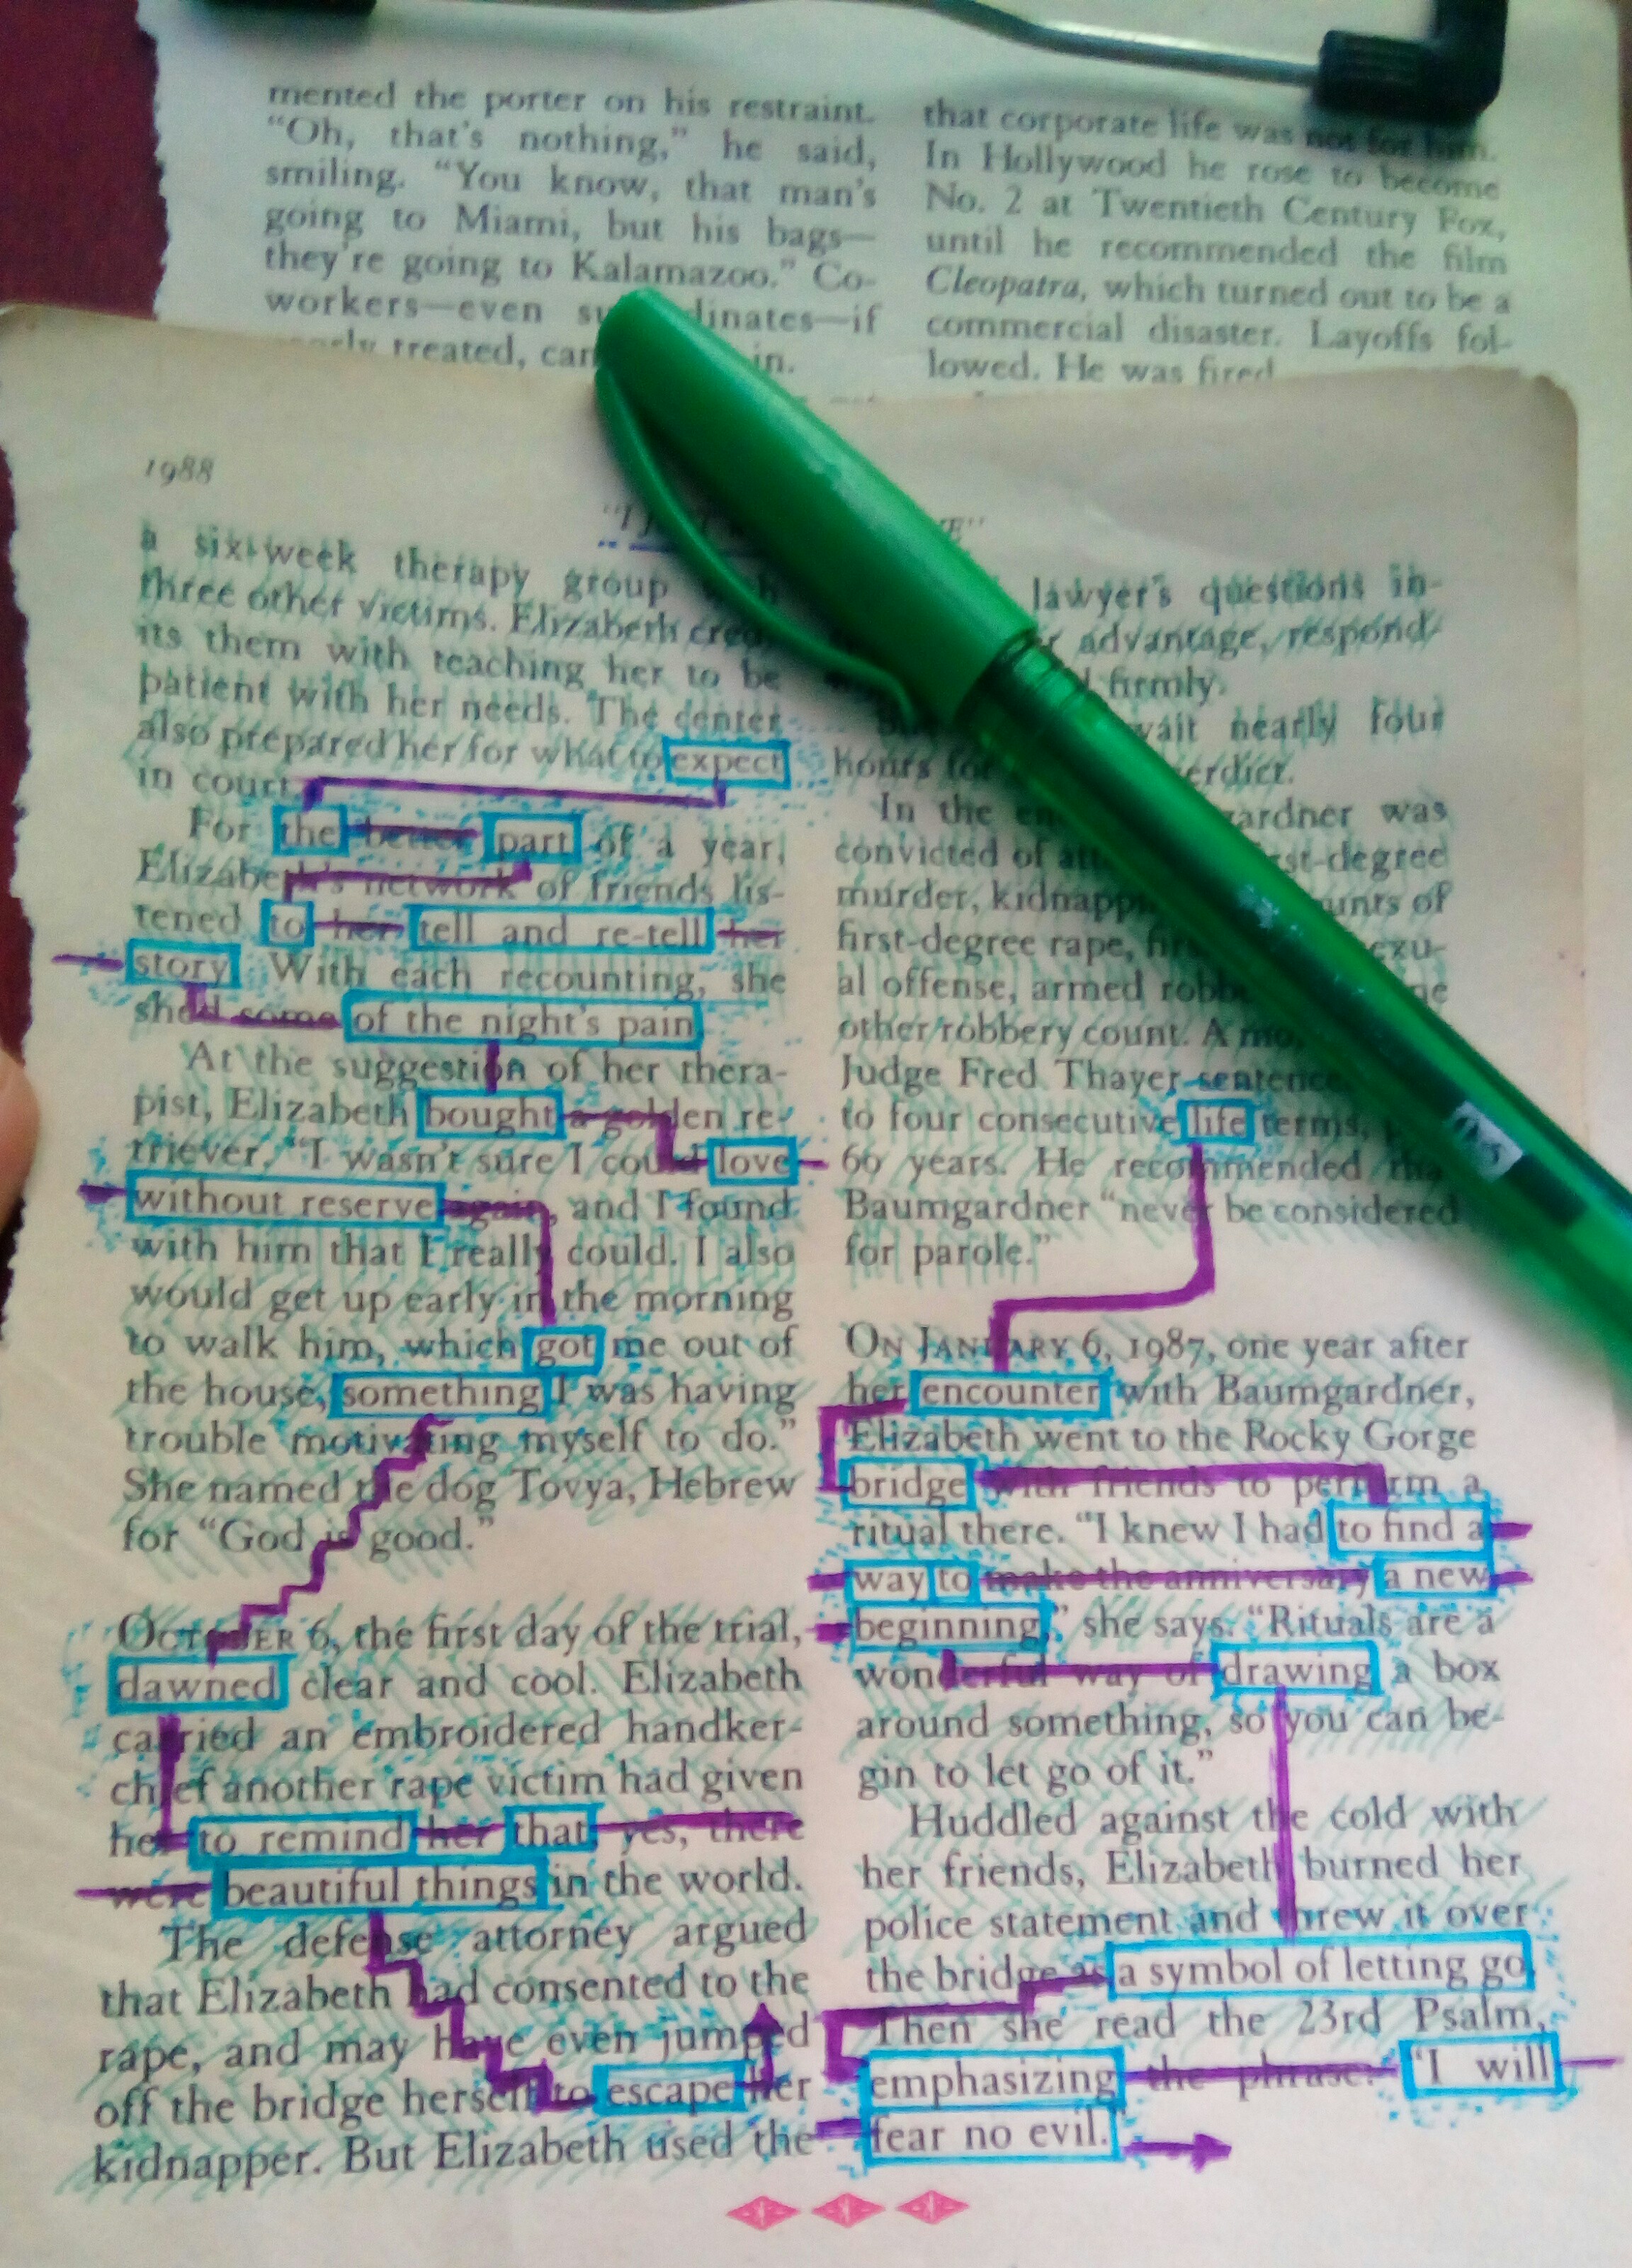 mented the porter on his restraint.
"Oh, that's nothing," he said,
smiling. "You know, that man's
going to Miami, but his bags—
they're going to Kalamazoo." Co-
workers—even dinates—if
treated, can in.
that corporate life was not for him.
In Hollywood he rose to become
No. 2 at Twentieth Century Fox,
until he recommended the film
Cleopatra, which turned out to be a
commercial disaster. Layoffs fol-
lowed. He was fired
1988
a six-week therapy group
three other victims. Elizabeth cred-
its them with teaching her to be
patient with her needs. The center
also prepared her for what to expect
in court.
For the better part of a year,
Elizabeth's network of friends lis-
tened to her tell and re-tell her
story. With each recounting, she
shed some of the night's pain.
At the suggestion of her thera-
pist, Elizabeth bought a golden re-
triever. "I wasn't sure I could love
without reserve again, and I found
with him that I really could. I also
would get up early in the morning
to walk him, which got me out of
the house, something I was having
trouble motivating myself to do."
She named the dog Tovya, Hebrew
for "God is good."
OCTOBER 6, the first day of the trial,
dawned clear and cool. Elizabeth
carried an embroidered handker-
chief another rape victim had given
her to remind her that, yes, there
were beautiful things in the world.
The defense attorney argued
that Elizabeth had consented to the
rape, and may have even jumped
off the bridge herself to escape her
kidnapper. But Elizabeth used the
lawyer's questions in-
advantage, respond-
firmly.
wait nearly four
hours for erdict.
In the ardner was
convicted of st-degree
murder, kidnapp unts of
first-degree rape, exu-
al offense, armed
other robbery count. A
Judge Fred Thayer sentence
to four consecutive life terms,
60 years. He recommended
Baumgardner "never be considered
for parole."
ON JANUARY 6, 1987, one year after
her encounter with Baumgardner,
Elizabeth went to the Rocky Gorge
bridge with friends to perform a
ritual there. "I knew I had to find a
way to make the anniversary a new
beginning," she says. "Rituals are a
wonderful way of drawing a box
around something, so you can be-
gin to let go of it."
Huddled against the cold with
her friends, Elizabeth burned her
police statement and threw it over
the bridge as a symbol of letting go.
Then she read the 23rd Psalm,
emphasizing the phrase: "I will
fear no evil."